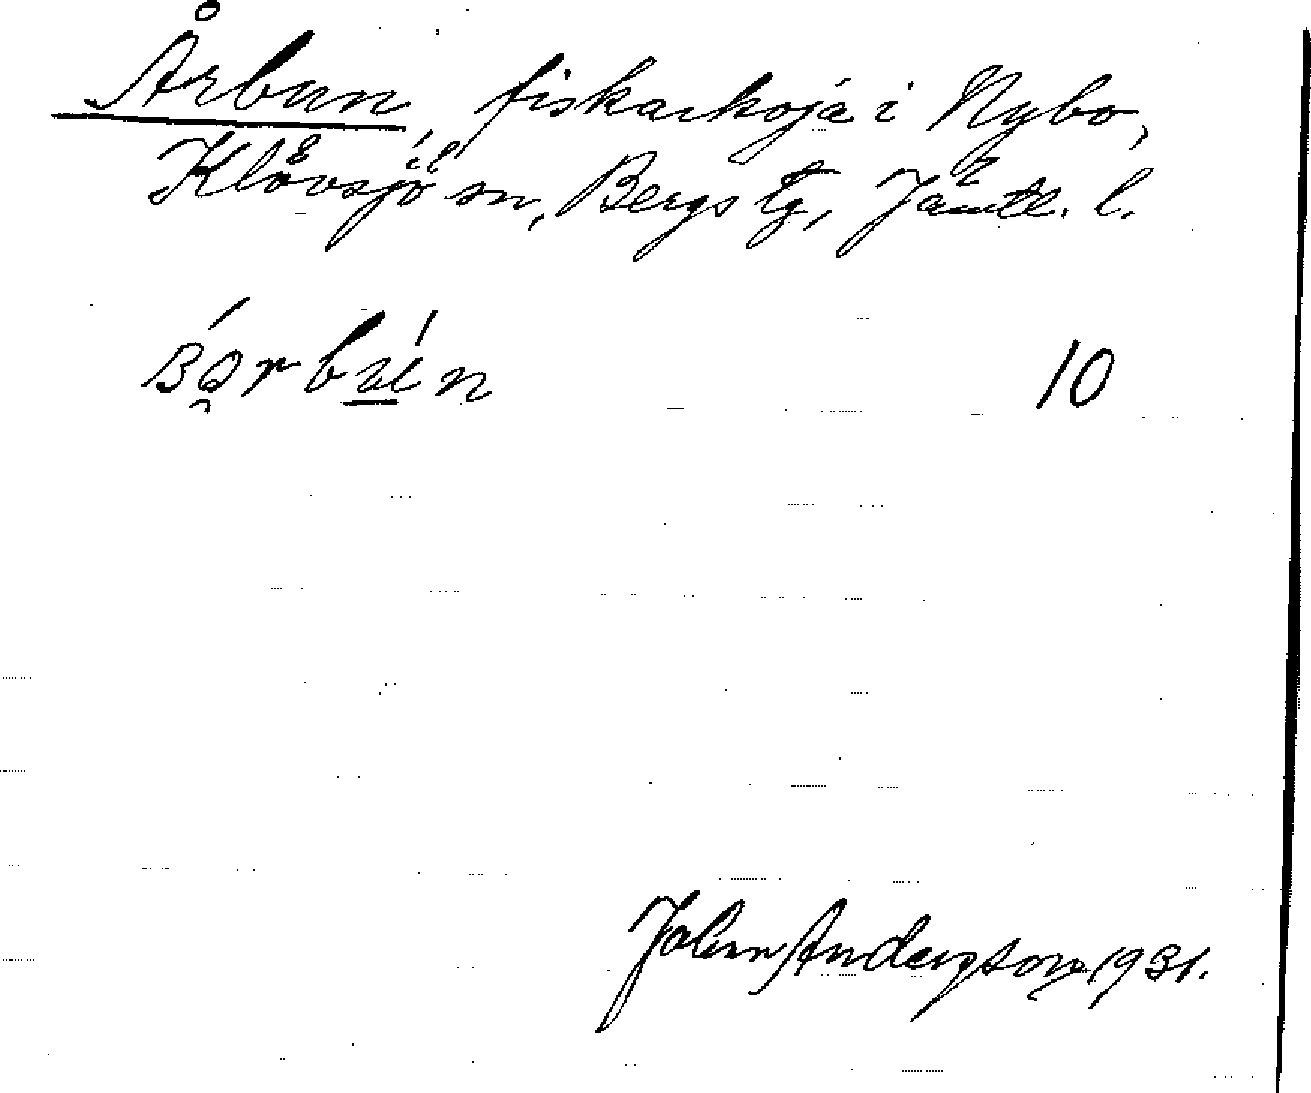 Årbun, fiskarkoja i Nybo,
Klövsjö sn, Bergs tg, Jämtl. l.
10
John Anderson 1931.